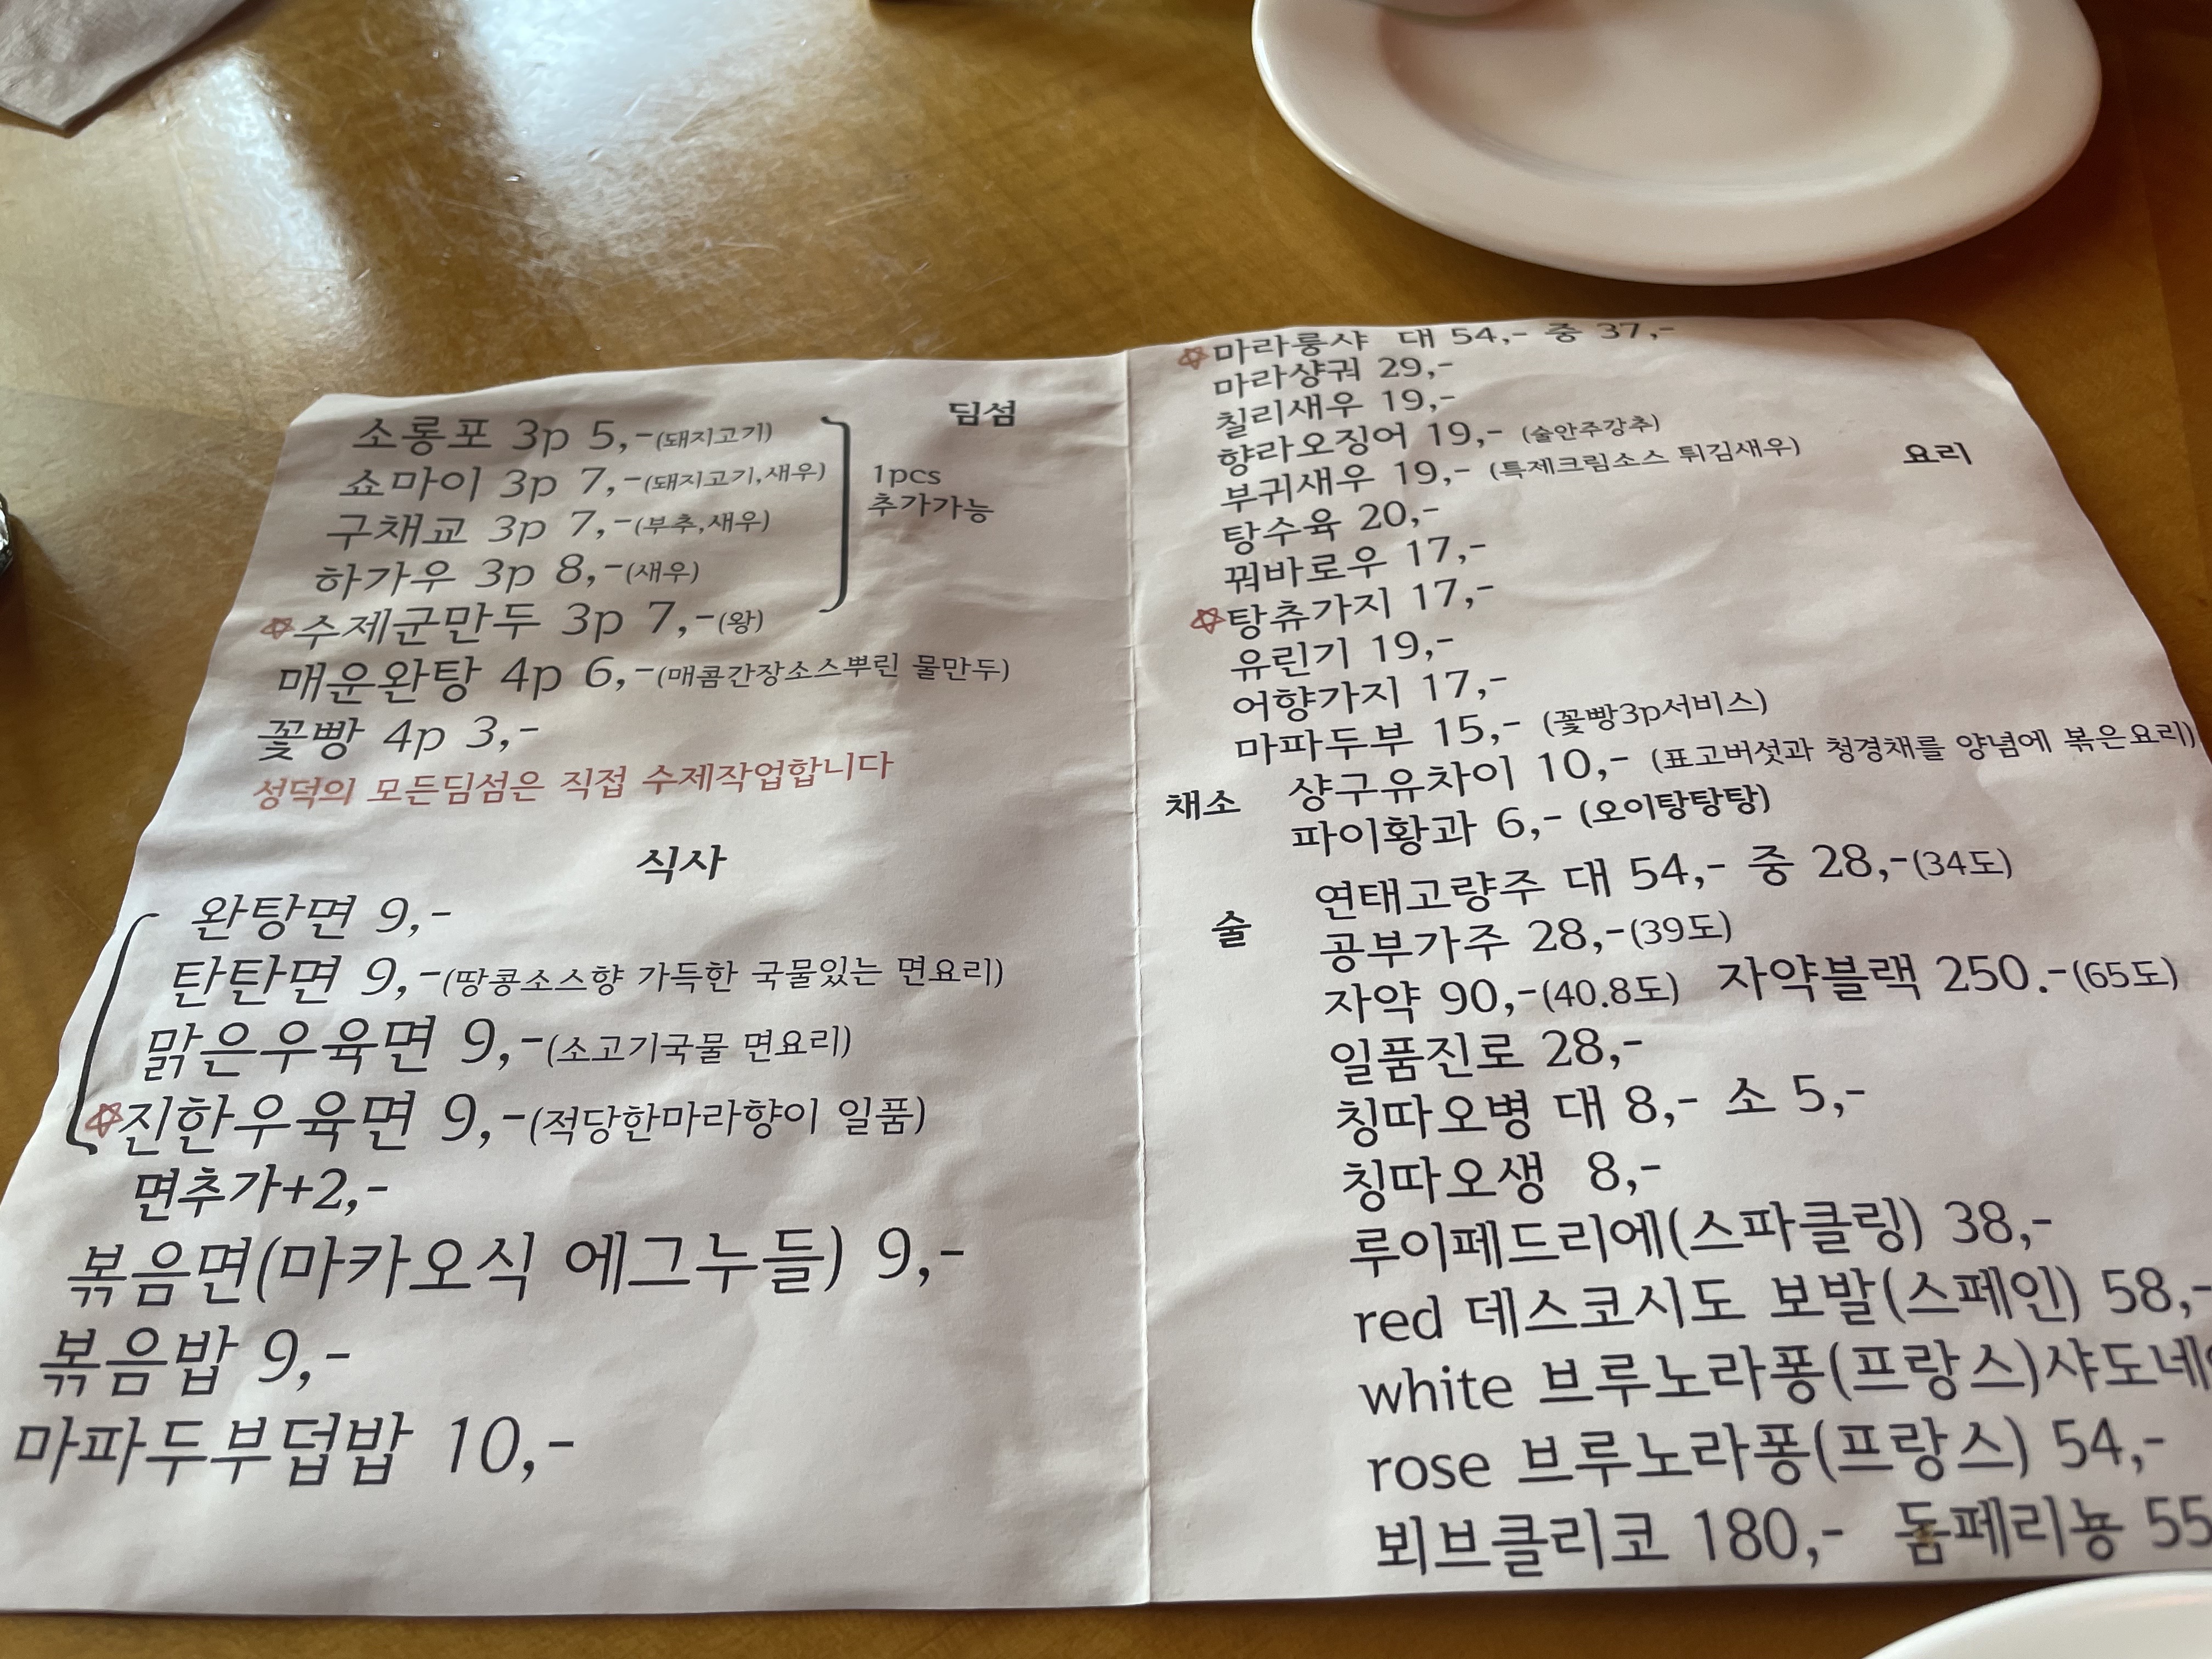 딤섬
소롱포 3p 5,-(돼지고기)
쇼마이 3p 7,-(돼지고기,새우)
구채교 3p 7,-(부추,새우)
하가우 3p 8,-(새우)
수제군만두 3p 7,-(왕)
1pcs
추가가능
매운완탕 4p 6,-(매콤간장소스뿌린 물만두)
꽃빵 4p 3,-
성덕의 모든딤섬은 직접 수제작업합니다
식사
완탕면 9,-
탄탄면 9,-(땅콩소스향 가득한 국물있는 면요리)
맑은우육면 9,-(소고기국물 면요리)
진한우육면 9,-(적당한마라향이 일품)
면추가+2,-
볶음면(마카오식 에그누들) 9,-
볶음밥 9,-
마파두부덥밥 10,-
요리
마라룽샤 대 54,- 중 37,-
마라샹궈 29,-
칠리새우 19,-
향라오징어 19,- (술안주강추)
부귀새우 19,- (특제크림소스 튀김새우)
탕수육 20,-
꿔바로우 17,-
탕츄가지 17,-
유린기 19,-
어향가지 17,-
마파두부 15,- (꽃빵3p서비스)
채소
샹구유차이 10,- (표고버섯과 청경채를 양념에 볶은요리)
파이황과 6,- (오이탕탕탕)
술
연태고량주 대 54,- 중 28,-(34도)
공부가주 28,-(39도)
자약 90,-(40.8도) 자약블랙 250.-(65도)
일품진로 28,-
칭따오병 대 8,- 소 5,-
칭따오생 8,-
루이페드리에(스파클링) 38,-
red 데스코시도 보발(스페인) 58,-
white 브루노라퐁(프랑스)샤도네
rose 브루노라퐁(프랑스) 54,-
뵈브클리코 180,- 돔페리뇽 55